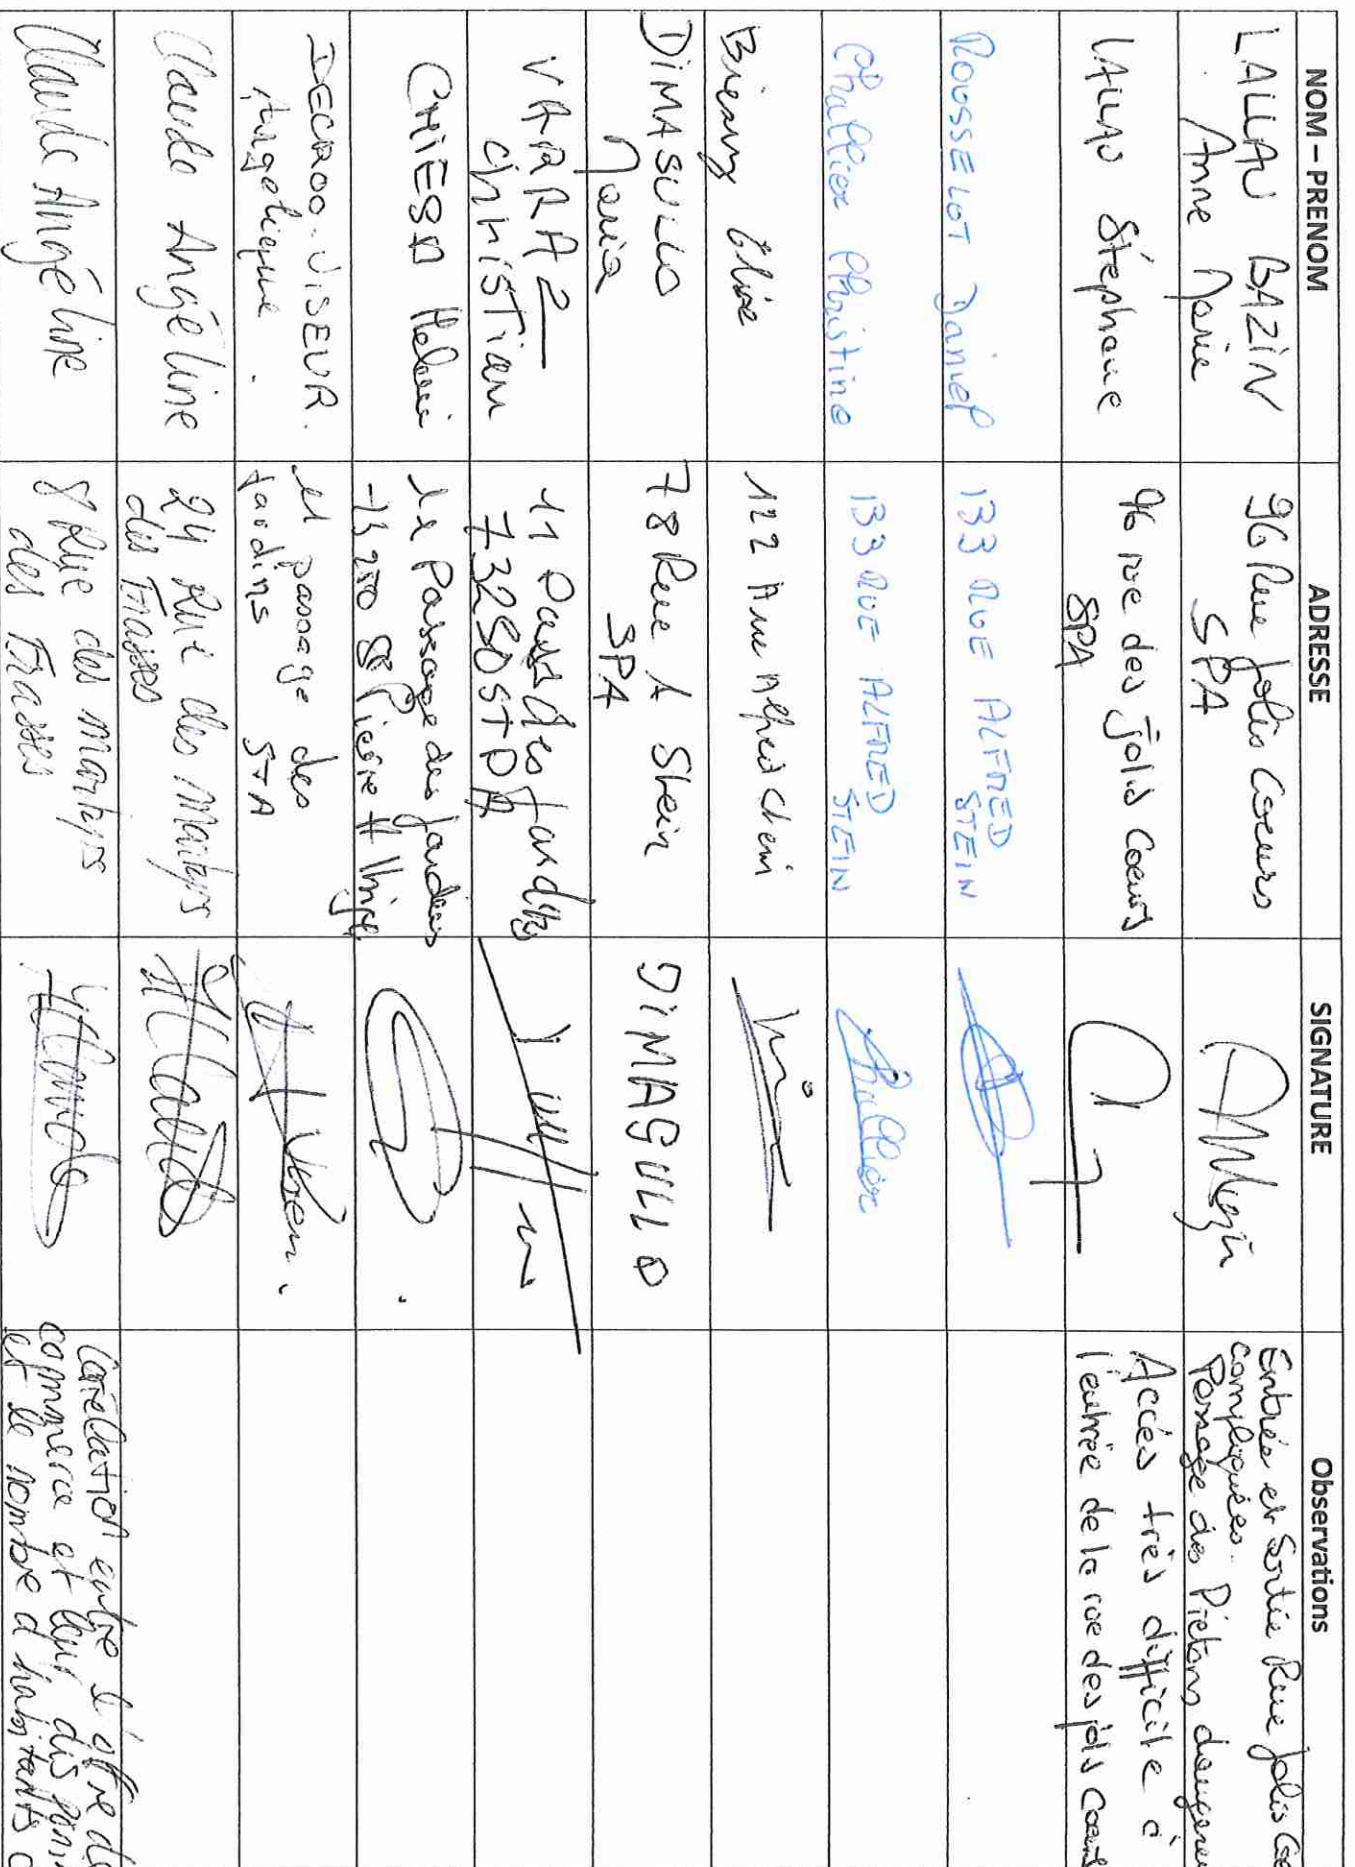 NOM – PRENOM
ADRESSE
SIGNATURE
Observations
LALLAU BAZIN
Anne Marie
96 Rue Jolis Coeurs
SPA
Entrée et Sortie Rue Jolis
compliquées.
Passage des Piétons
LALLAU Stéphane
96 rue des jolis Coeurs
SPA
Accès très difficile à
l'entrée de la rue des jolis Coeurs
ROUSSELOT Daniel
133 RUE ALFRED
STEIN
Challier Christine
133 RUE ALFRED
STEIN
Challier
Elise
122 Alfred
DIMASULLO
Maria
78 Rue A Stein
SPA
DIMASULLO
VARRAZ
Christian
11 Pass des Jardins
73250 STPA
CHIESA
Passage des Jardins
73250
DECROO. VISEUR.
Angélique.
passage des
jardins
Claude Angéline
24 Rue des Martyrs
des Frasses
Claude Angéline
8 Rue des martyrs
des Frasses
Corélation entre l'offre de
commerce et leur
et le nombre d'habitants